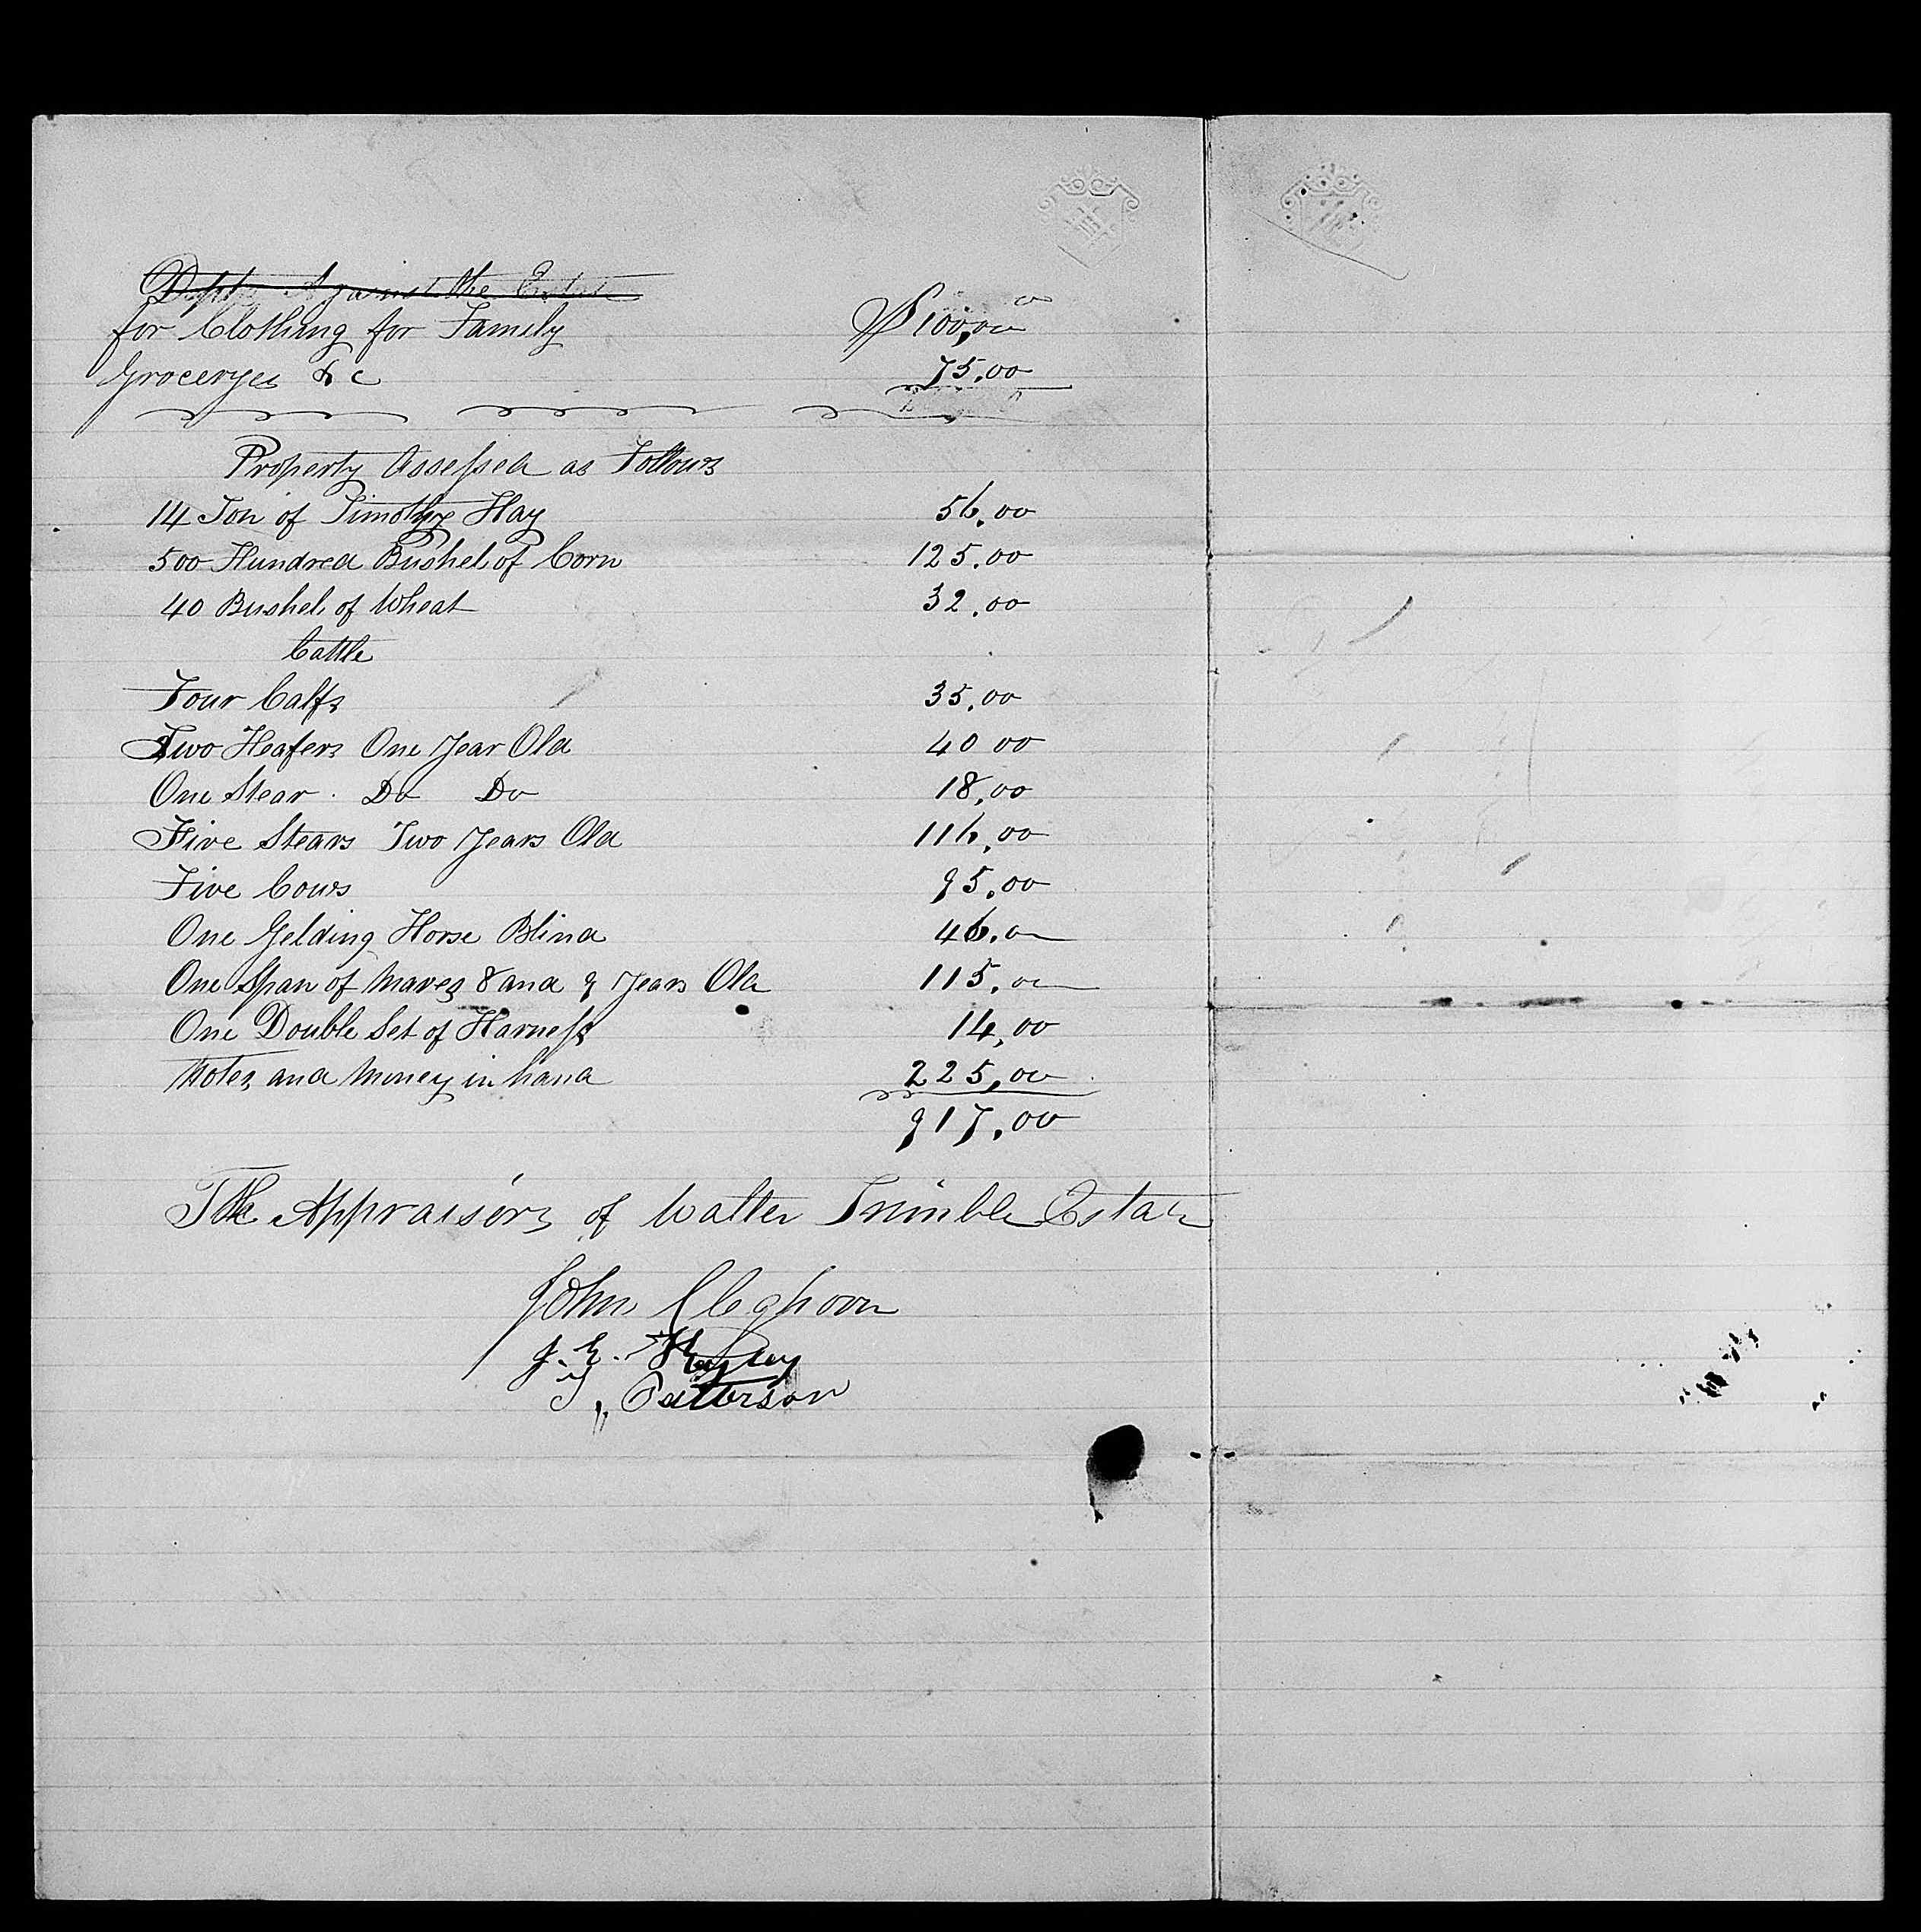 Depts Against the Estate
for Clothing for Family $100,00
Groceryes &c 75.00
Property Assessed as Follows
14 Ton of Timothy Hay 56.00
500 Hundred Bushel of Corn 125.00
40 Bushel of Wheat 32.00
Cattle
Four Calfs 35.00
Two Heafers One Year Old 40 00
One Stear . Do Do 18.00
Five Stears Two Years Old 116.00
Five Cows 95.00
One Gelding Horse Blind 46.00
One Span of Mares 8 and 9 Years Old 115.00
One Double Set of Harness 14,00
Notes and Money in hand 225,00
917.00
The Appraisors of Walter Trimble Estate
John Cleghorn
J. E.
J. Patterson